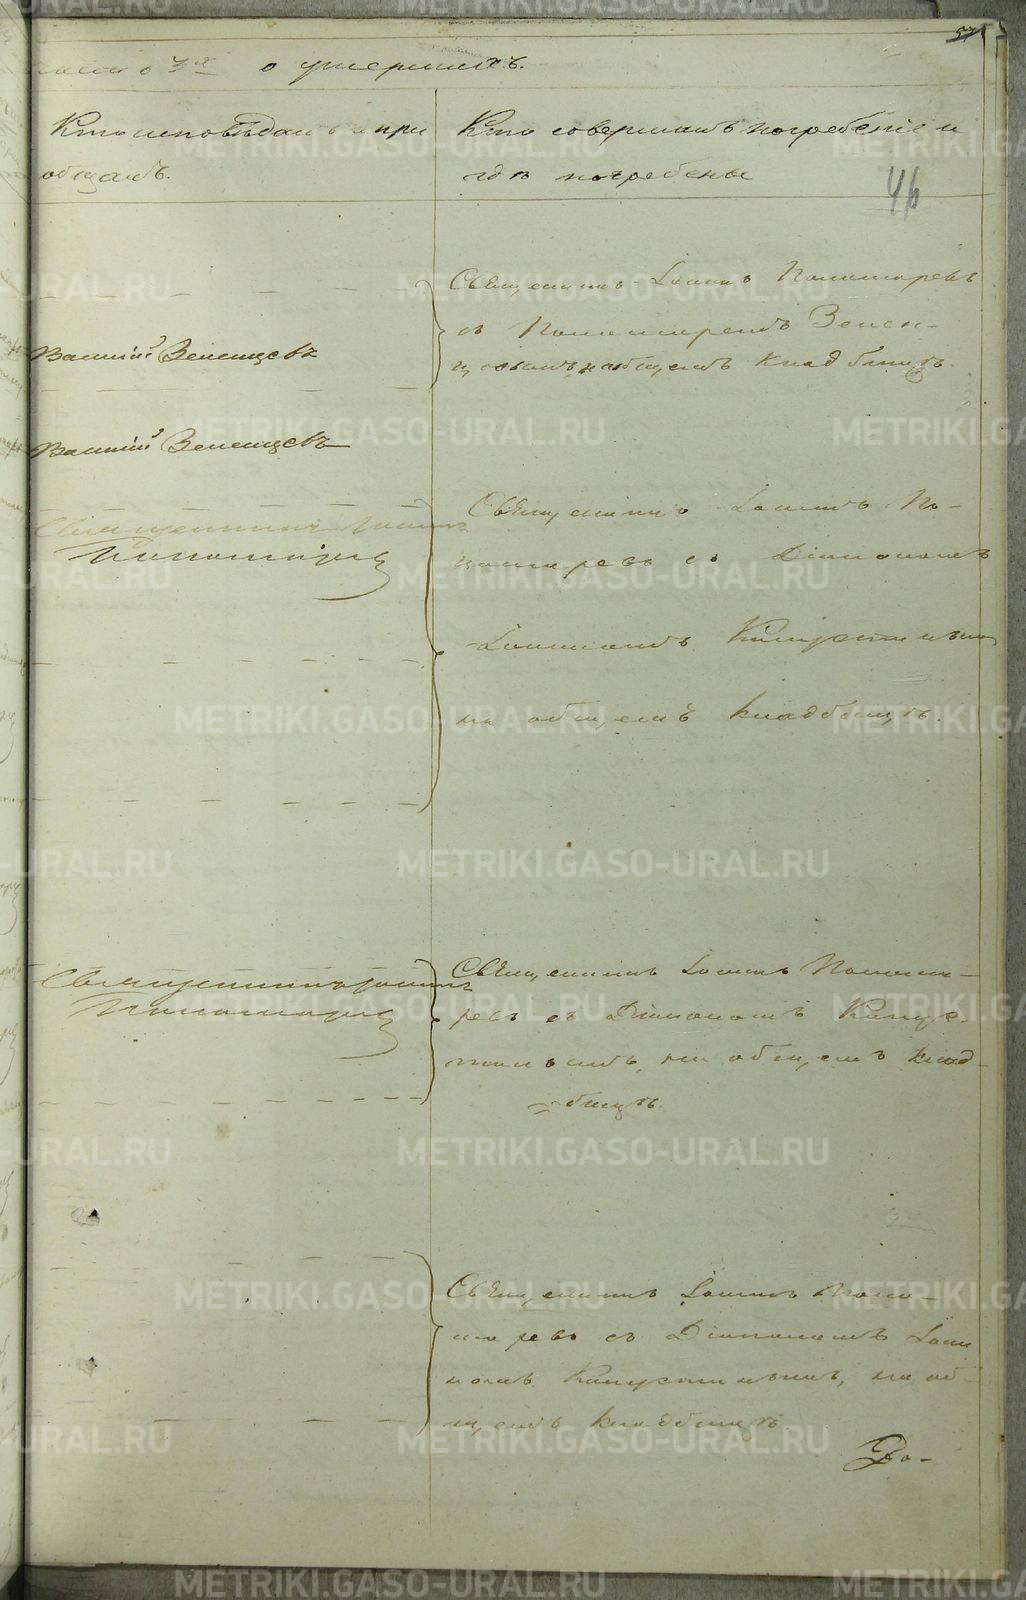 57
часть 3я о умершихъ.
Кто исповѣдалъ и прі
общалъ.
Кто совершалъ погребеніе и
гдѣ погребены
46
Священникъ Іоаннъ Пономаревъ
съ Пономаремъ Зенен-
цовымъ, на общемъ кладбищѣ.
Василій Зененцевъ
Василій Зененцевъ
Священникъ Іоаннъ
Пономаревъ
Священникъ Іоаннъ По-
номаревъ съ Діакономъ
Іоанномъ Капустинымъ
на общемъ кладбищѣ.
Священникъ Іоаннъ
Пономаревъ
Священникъ Іоаннъ Понома-
ревъ съ Діакономъ Капус-
тинымъ, на общемъ клад-
бищѣ.
Священникъ Іоаннъ Поно-
маревъ съ Діакономъ Іоан
номъ Капустинымъ, на об-
щемъ кладбищѣ
До-
METRIKI.GASO-URAL.RU